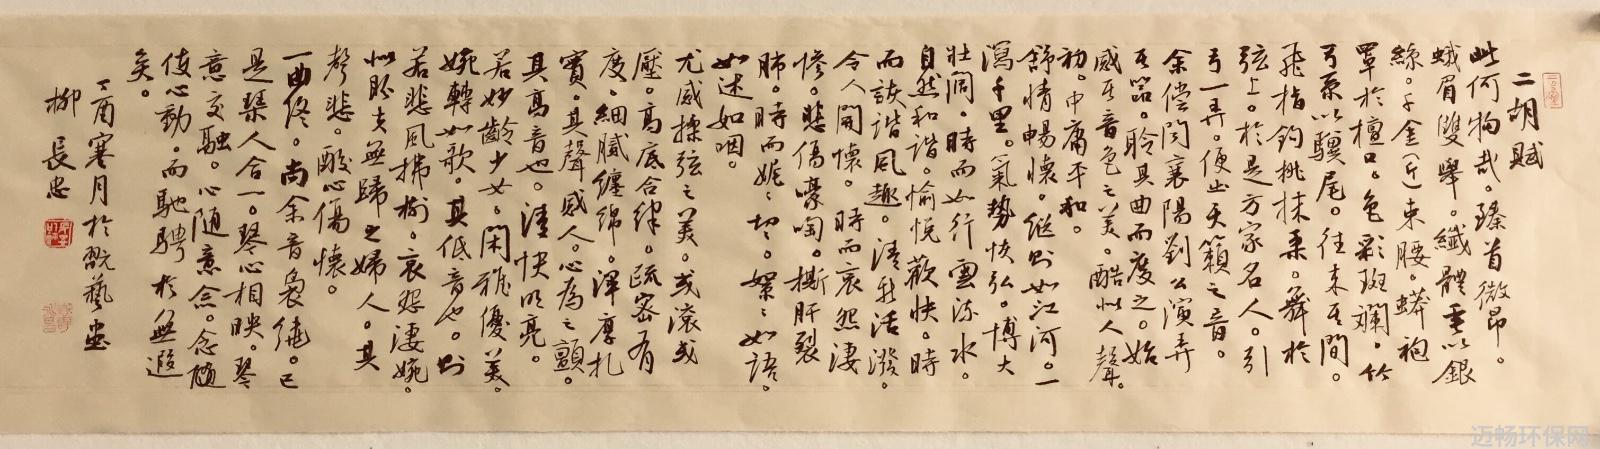 二胡賦
此何物哉。臻首微昂。
蛾眉雙舉。纖體垂以銀
絲。千金(斤)束腰。蟒袍
罩於檀口。色彩斑斕。竹
弓系以驥尾。往来其間。
飛指鈎挑抹柔。舞於
弦上。於是方家名人。引
弓一弄。便出天籟之音。
余偿閃襄陽劉公演弄
其器。聆其曲而度之。始
感其音色之美。酷似人聲。
初。中庸平和。
舒情暢懷。縱則如江河。一
瀉千里。氣勢恢弘。博大
壯闊。時而如行雲流水。
自然和谐。愉悦歡快。時
而詼諧风趣。清新活潑。
令人開懷。時而哀怨淒
惨。悲傷嚎啕。撕肝裂
肺。時而妮妮切切。絮絮如語。
如述如咽。
尤感揉弦之美。或滚或
壓。高底合律。疏密有
度。細膩纏綿。渾厚扎
實。其聲感人。心為之顫。
其高音也。清快明亮。
若妙齡少女。閑雅優美。
婉轉如歌。其低音也。則
若悲風拂樹。哀怨淒婉。
似盼夫無歸之婦人。其
聲悲。酸心傷懷。
一曲终。尚余音袅绕。已
是琴人合一。琴心相映。琴
意交融。心随意念。念随
使心動。而馳騁於無遐
矣。
丁酉寒月於翫藝堂
柳長忠
迈畅环保网